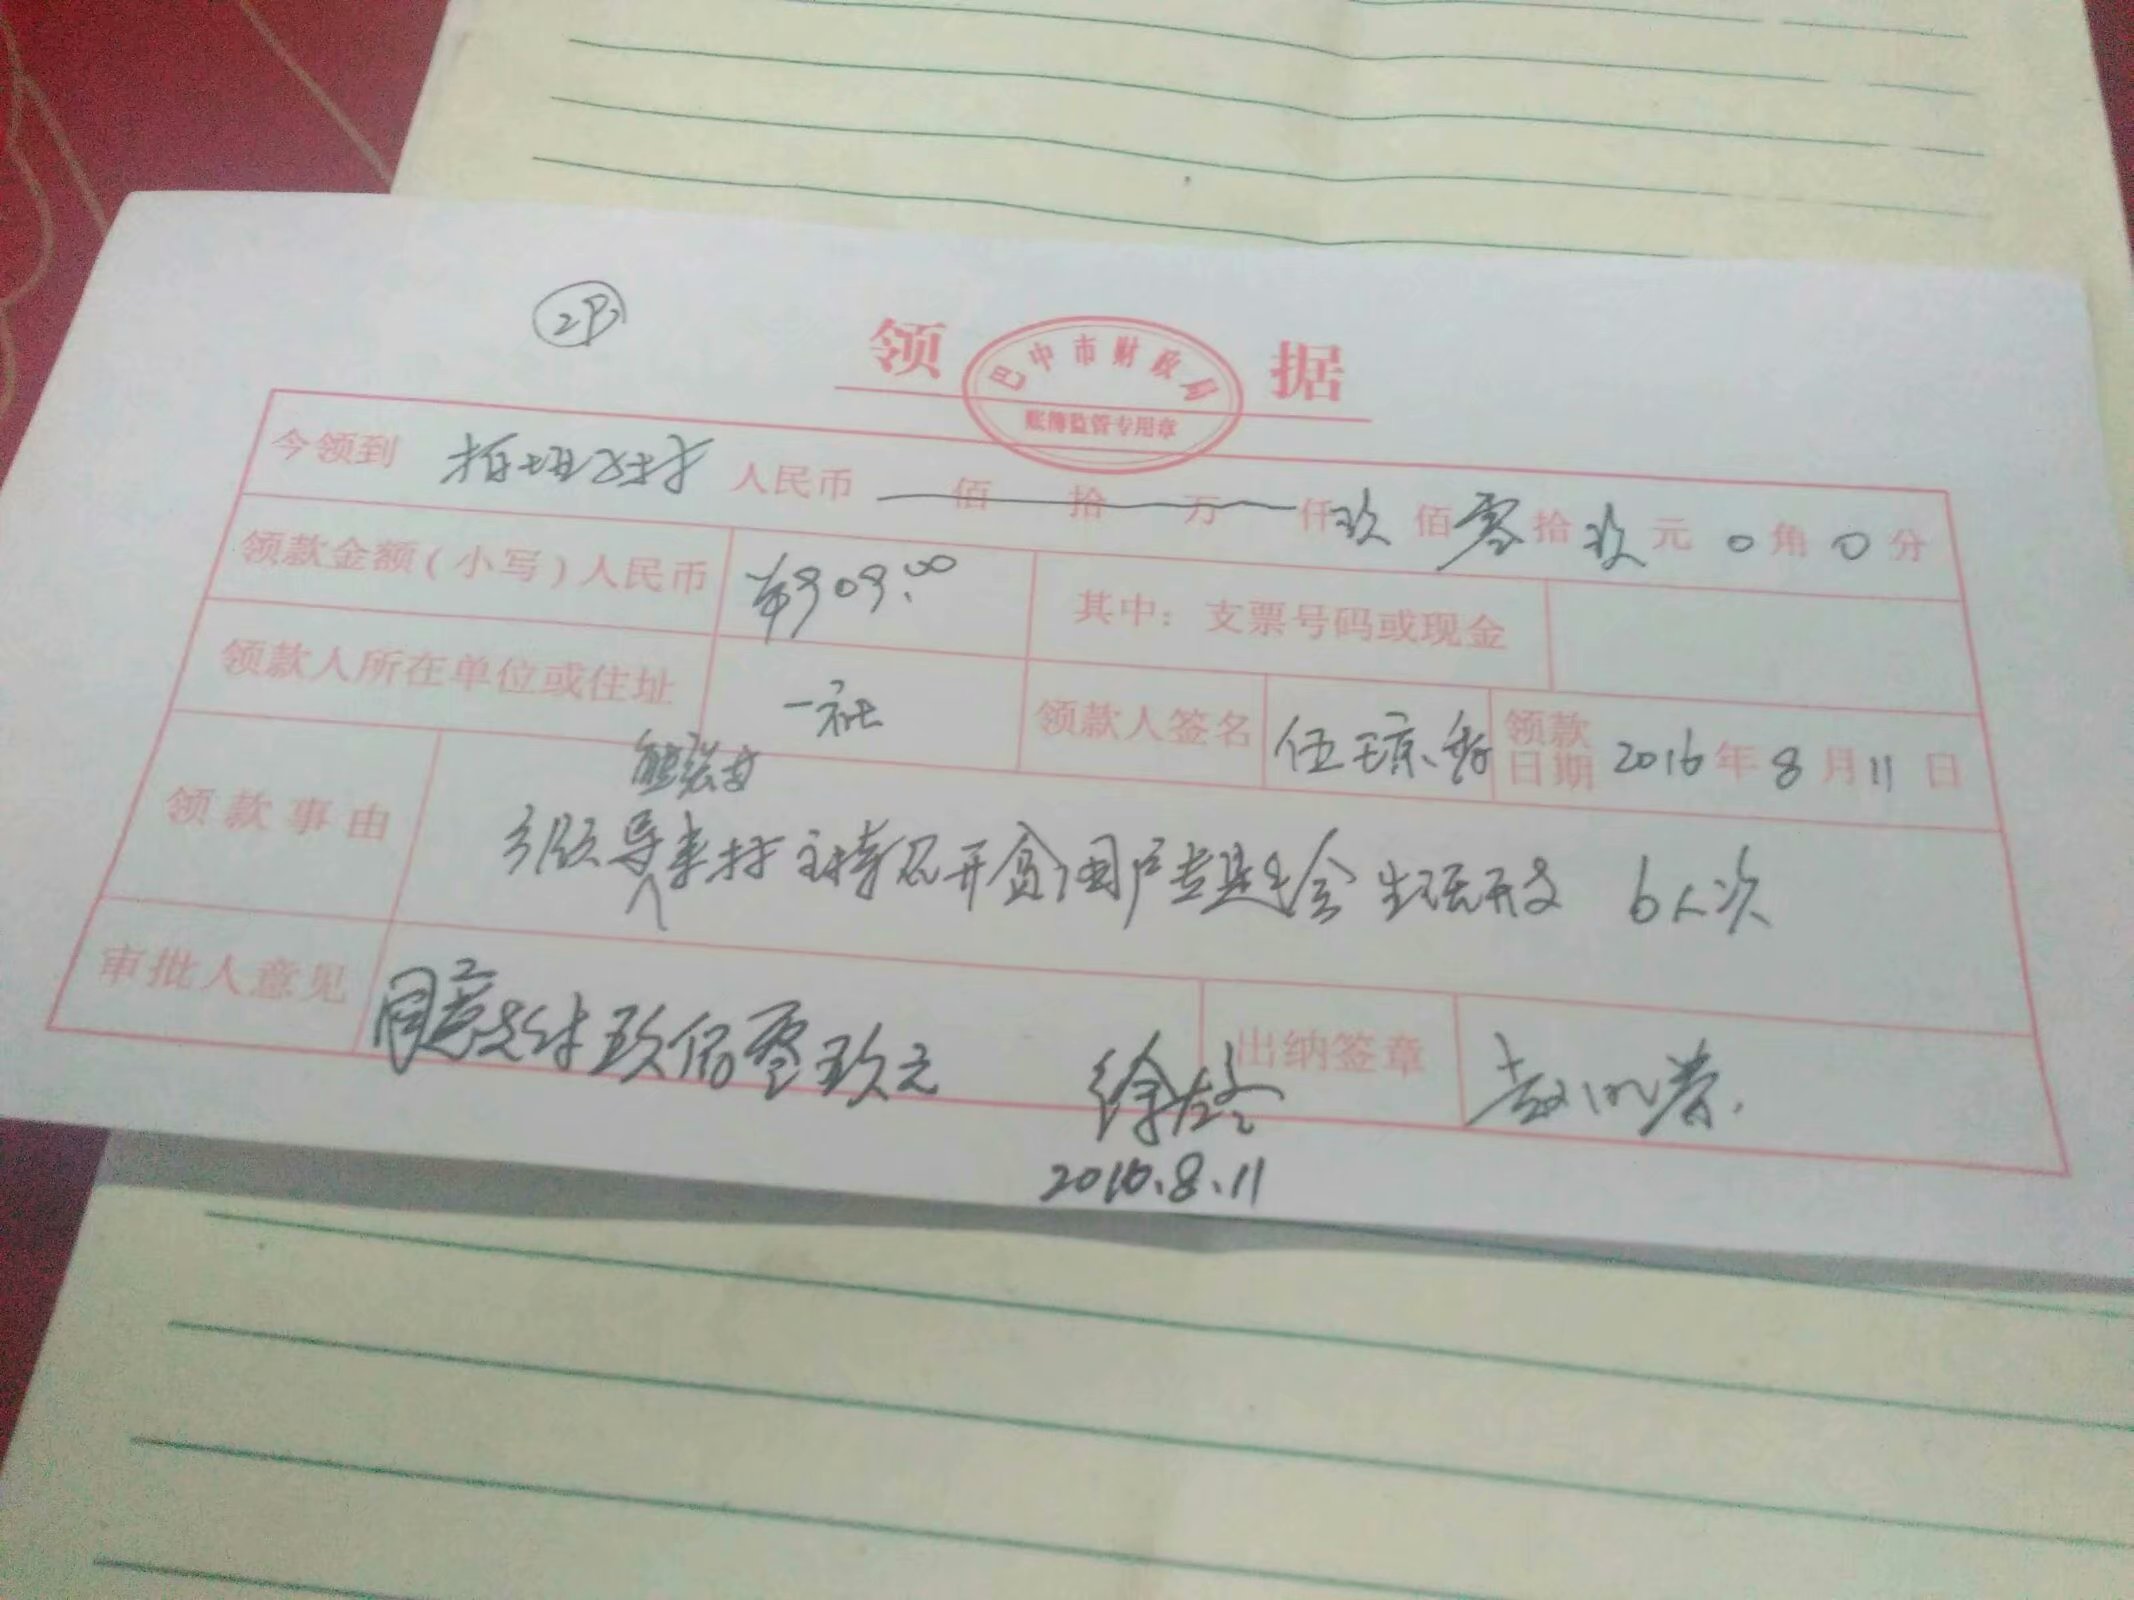 2P
领 据
巴中市财政局
账簿监管专用章
今领到 柏垭村 人民币 佰 拾 万 仟 玖 佰 零 拾 玖 元 0 角 0 分
领款金额(小写)人民币 ¥909.00 其中:支票号码或现金
领款人所在单位或住址 一社 领款人签名 伍琼 领款日期 2016年8月11日
领款事由
导来村主持召开贫困户专题会生活开支 6人次
审批人意见 同意支付玖佰零玖元 徐 出纳签章
2016.8.11